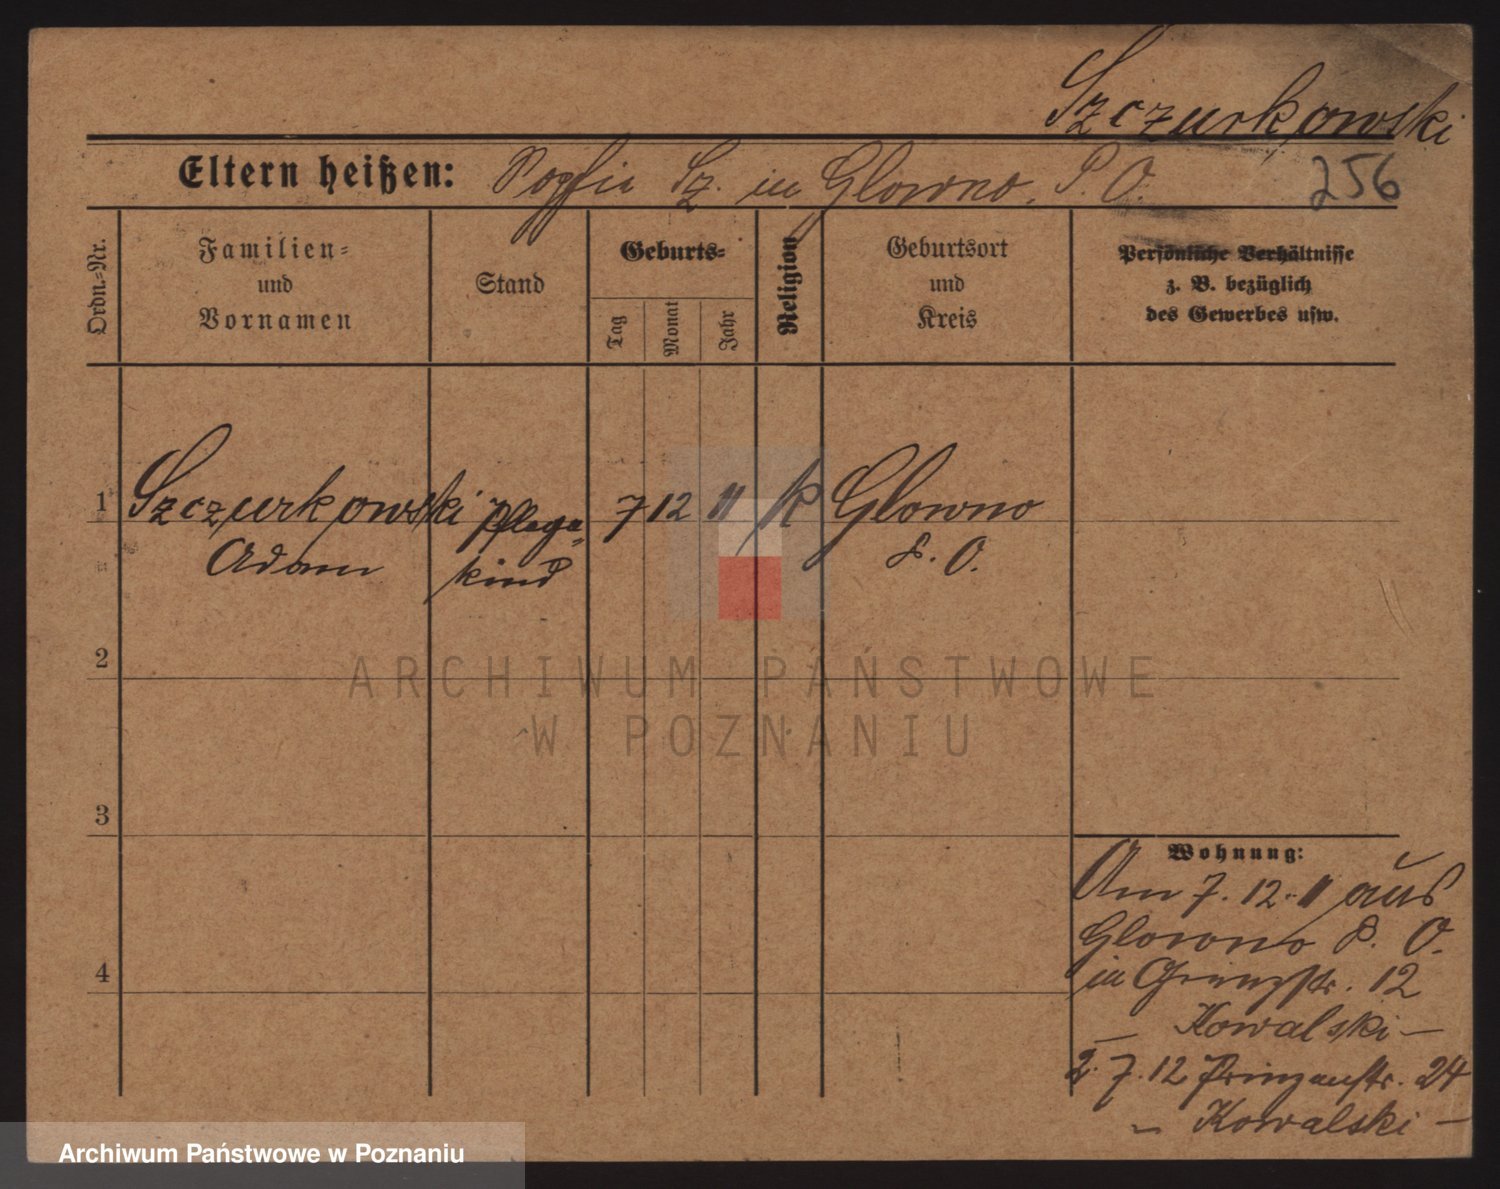 Szczurkowski
Eltern heißen: Sophie Sz. in Glowno, P. O. 256
Ordn.-Nr.
Familien-
und
Vornamen
Stand
Geburts-
Tag
Monat
Jahr
Religion
Geburtsort
und
Kreis
Persönliche Verhältnisse
z. B. bezüglich
des Gewerbes usw.
1 Szczurkowski Pflege- 7 12 11 k Glowno
Adam kind P. O.
2
3
4
Wohnung:
Am 7. 12. 11 aus
Glowno P. O.
in 12
- Kowalski -
2. 7. 12 Prinzenstr. 24
- Kowalski -
ARCHIWUM PAŃSTWOWE
W POZNANIU
Archiwum Państwowe w Poznaniu